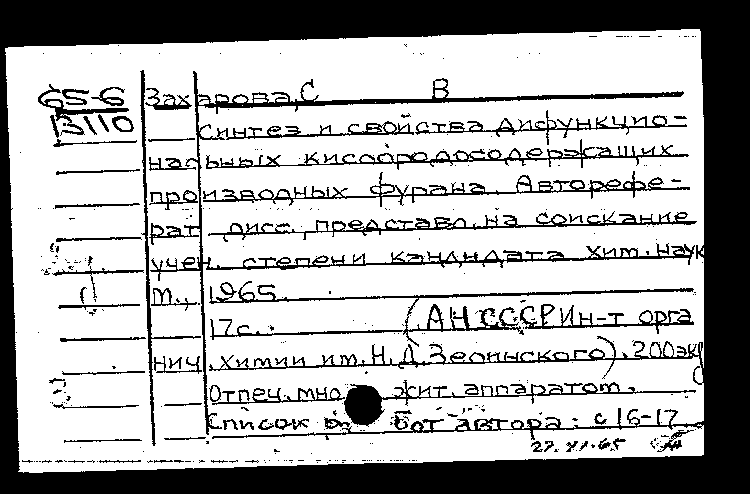 65-6 Захарова, С В
13110 Синтез и свойства дифункцио-
нальных кислородосодержащих
производных фурана. Авторефе-
рат дисс., представл. на соискание
учен. степени кандидата хим. наук
М., 1965.
17с. (АН СССР Ин-т орга
нич. химии им. Н. Д. Зелинского). 200экз
Отпеч. мно жит. аппаратом.
Список бот автора: с 16-17
27.XI.65